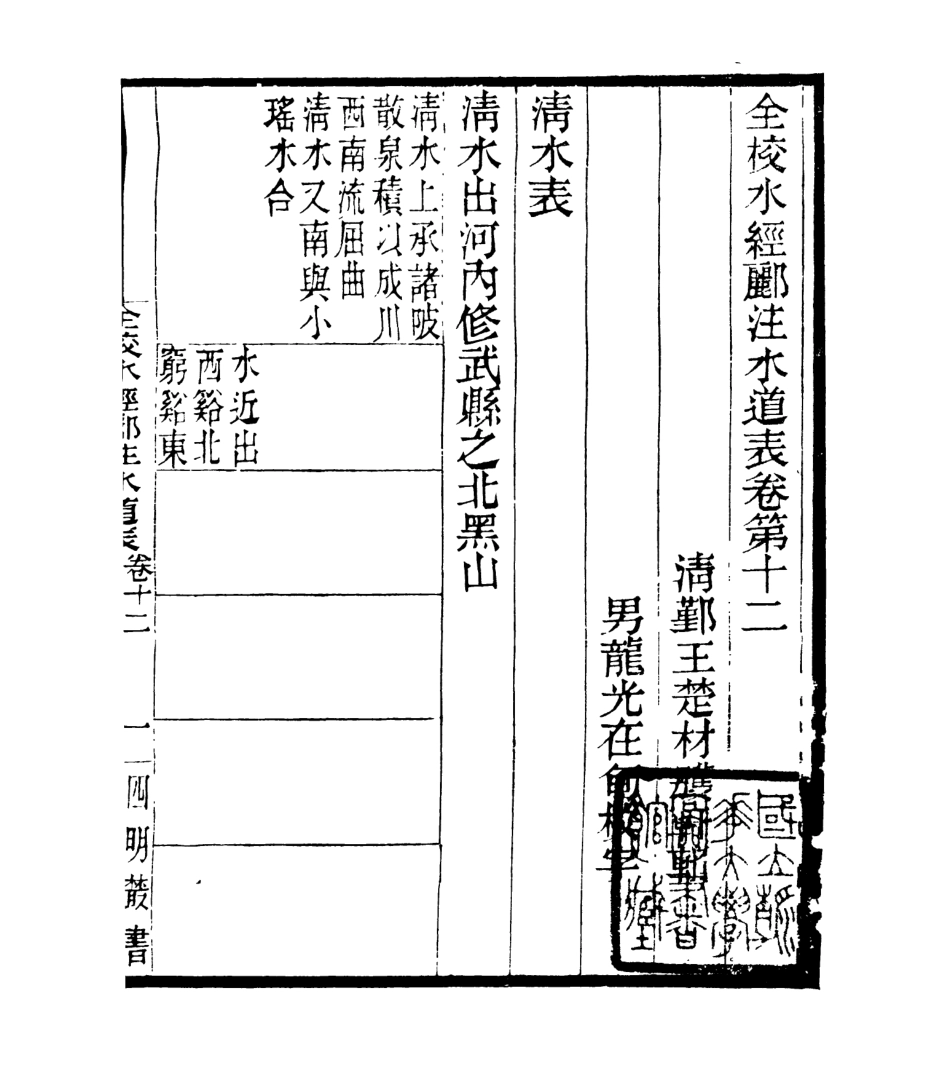 全校水經酈注水道表卷第十二
清鄞王楚材
男龍光在
清水表
清水出河內修武縣之北黑山
清水上承諸陂
散泉積以成川
西南流屈曲
清水又南與小
瑤水合
水近出
西谿北
窮谿東
全校水經酈注水道表 卷十二 一 四明叢書